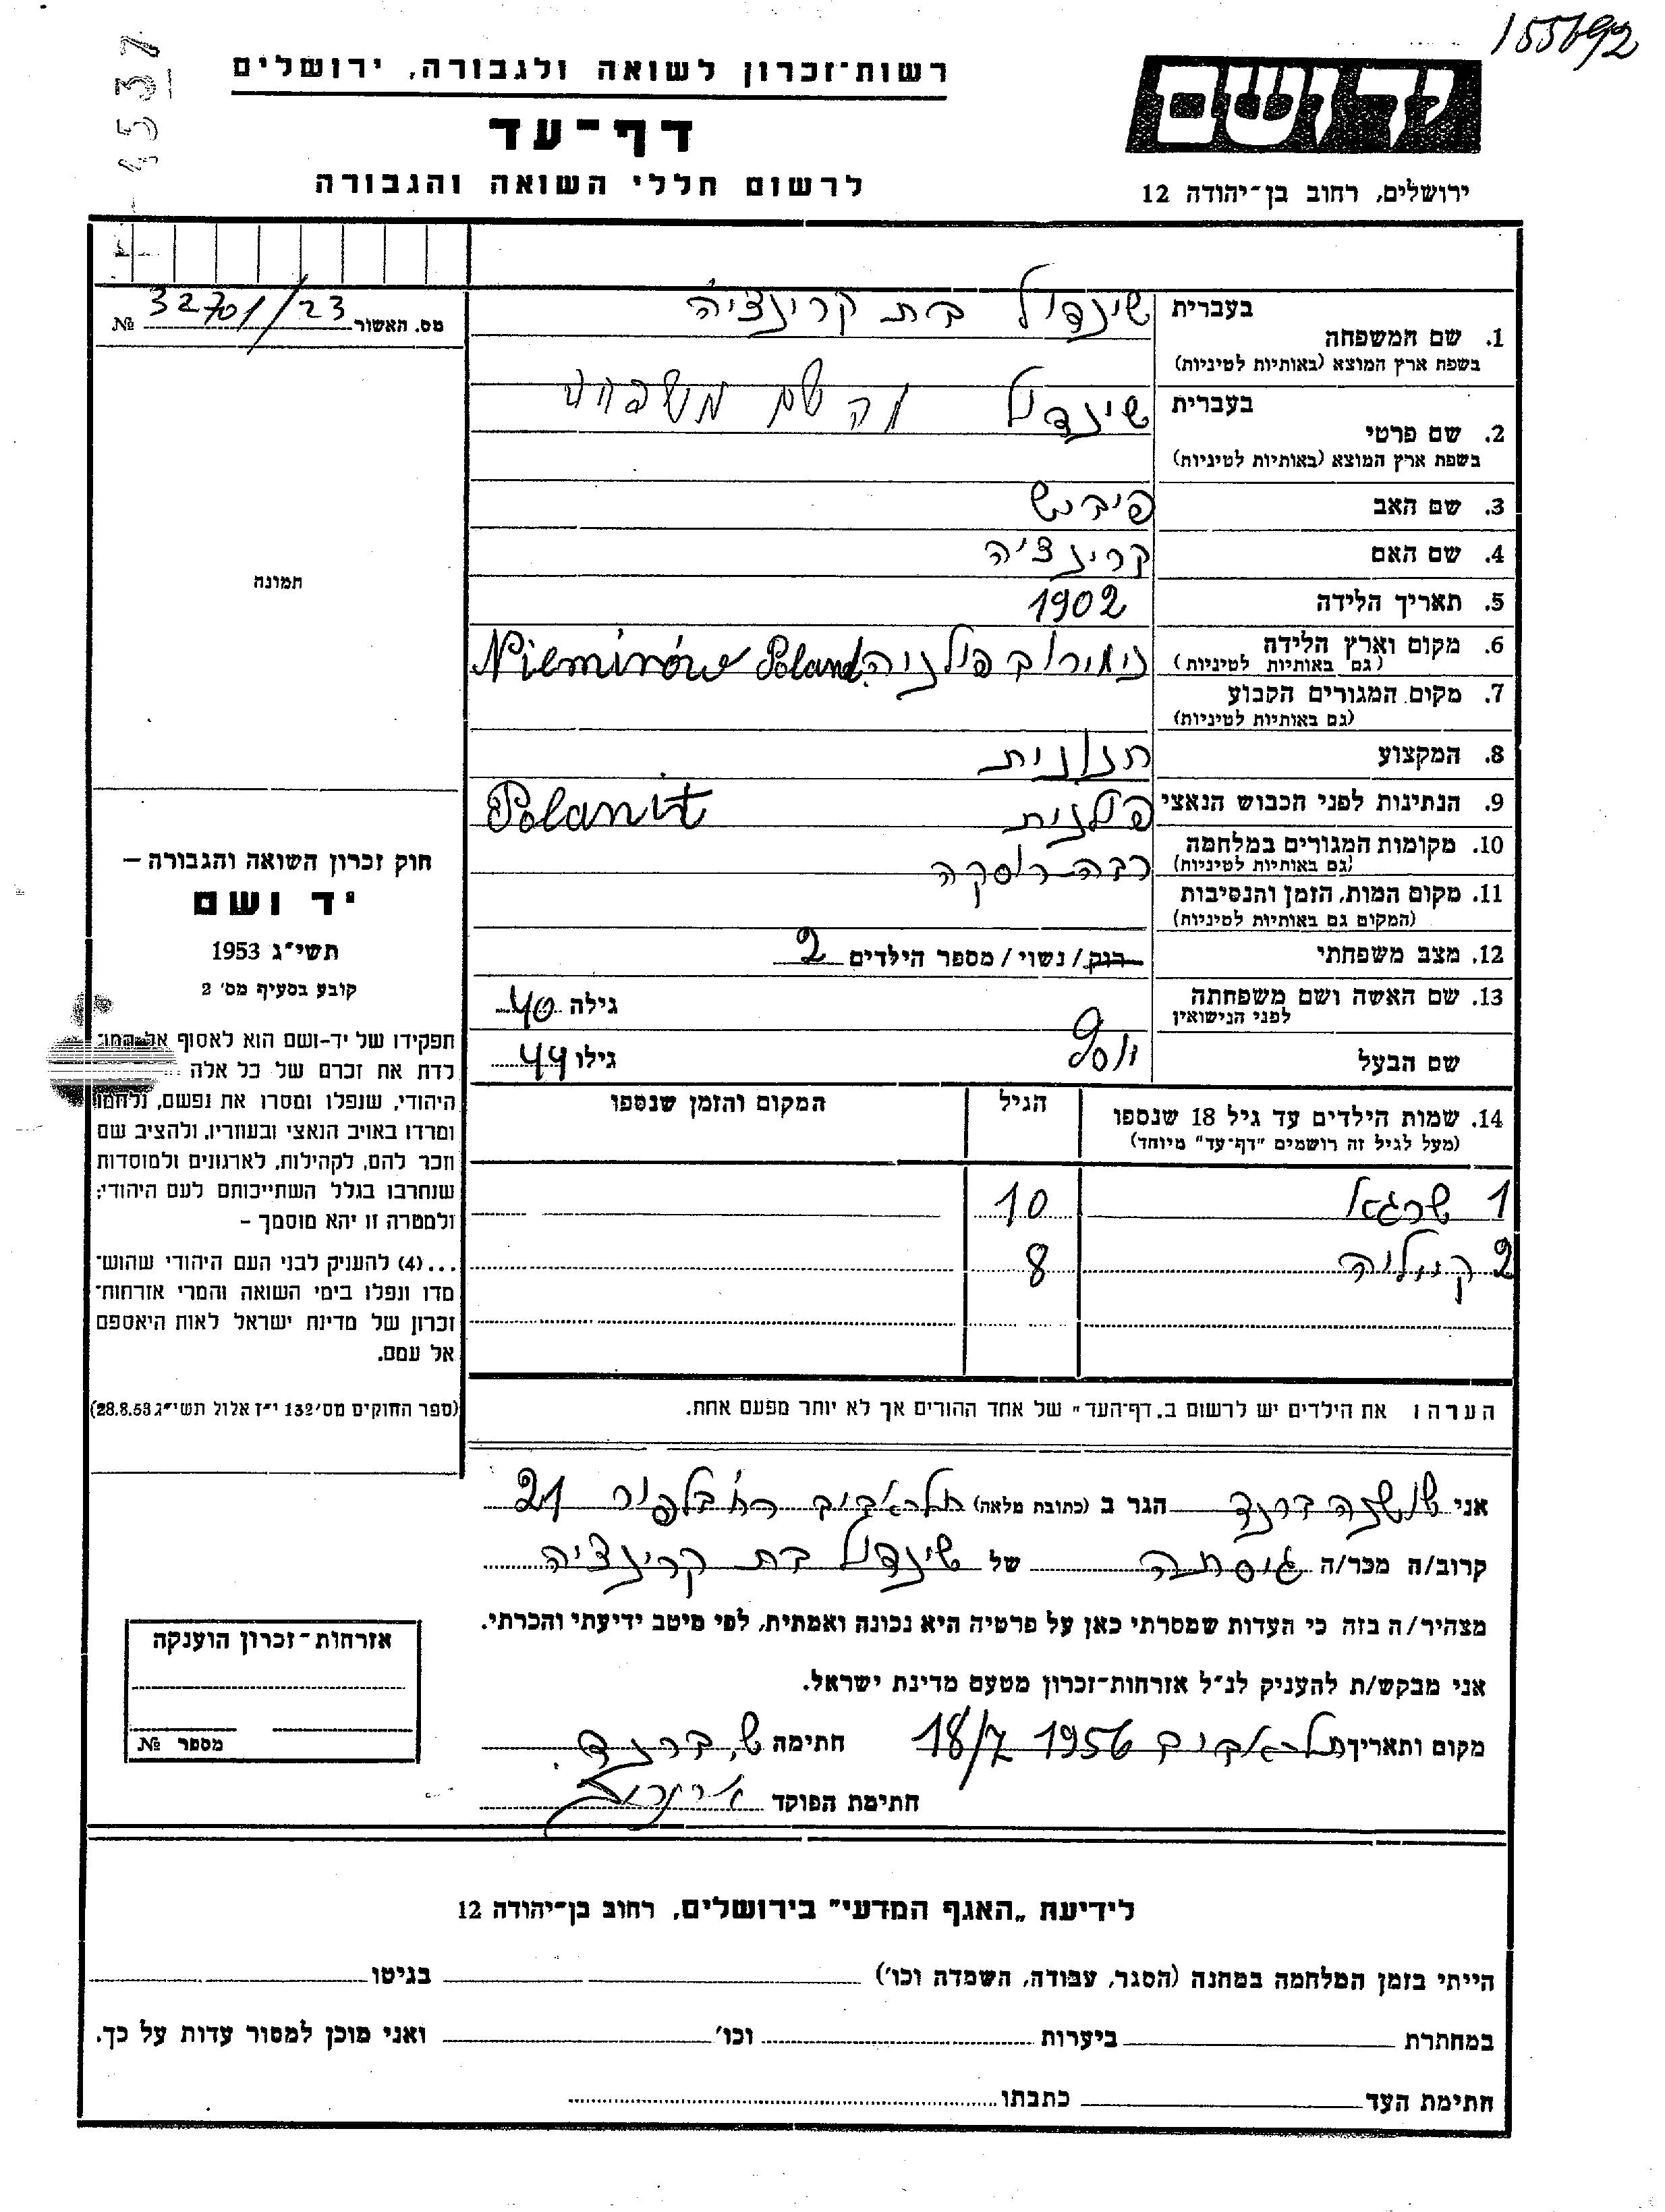 155692
8537
רשות־זכרון לשואה ולגבורה, ירושלים
דף־עד
לרשום חללי השואה והגבורה
יד ושם
ירושלים, רחוב בן־יהודה 12
מס. האשור 32701/23 №
תמונה
חוק זכרון השואה והגבורה –
יד ושם
תשי״ג 1953
קובע בסעיף מס׳ 2
תפקידו של יד-ושם הוא לאסוף אל המו־
לדת את זכרם של כל אלה
היהודי, שנפלו ומסרו את נפשם, נלחמו
ומרדו באויב הנאצי ובעוזריו, ולהציב שם
וזכר להם, לקהילות, לארגונים ולמוסדות
שנחרבו בגלל השתייכותם לעם היהודי;
ולמטרה זו יהא מוסמך –
...(4) להעניק לבני העם היהודי שהוש־
מדו ונפלו בימי השואה והמרי אזרחות־
זכרון של מדינת ישראל לאות היאספם
אל עמם.
(ספר החוקים מס׳ 132 י״ז אלול תשי״ג 28.8.53)
1. שם המשפחה בעברית שינדול בת קרינציה
בשפת ארץ המוצא (באותיות לטיניות)
2. שם פרטי בעברית שינדיל
בשפת ארץ המוצא (באותיות לטיניות)
3. שם האב פייבש
4. שם האם קרינציה
5. תאריך הלידה 1902
6. מקום וארץ הלידה נימירוב פולניה Niemirów Poland
(גם באותיות לטיניות)
7. מקום המגורים הקבוע
(גם באותיות לטיניות)
8. המקצוע חנונית
9. הנתינות לפני הכבוש הנאצי פולנית Polanit
10. מקומות המגורים במלחמה רבה רוסקה
(גם באותיות לטיניות)
11. מקום המות, הזמן והנסיבות
(המקום גם באותיות לטיניות)
12. מצב משפחתי רוק / נשוי / מספר הילדים 2
13. שם האשה ושם משפחתה גילה 40
לפני הנישואין
שם הבעל יוסף גילו 44
14. שמות הילדים עד גיל 18 שנספו הגיל המקום והזמן שנספו
(מעל לגיל זה רושמים ״דף־עד״ מיוחד)
1 שרגאל 10
2 קיילה 8
הערה: את הילדים יש לרשום ב„דף־העד״ של אחד ההורים אך לא יותר מפעם אחת.
אני שושנה ברנד הגר ב (כתובת מלאה) תל אביב רח׳ בלפור 21
קרוב/ה מכר/ה גיסתה של שינדול בת קרינציה
מצהיר/ה בזה כי העדות שמסרתי כאן על פרטיה היא נכונה ואמתית, לפי מיטב ידיעתי והכרתי.
אני מבקש/ת להעניק לנ״ל אזרחות־זכרון מטעם מדינת ישראל.
מקום ותאריך תל אביב 18/7 1956 חתימה ש. ברנד.
חתימת הפוקד
אזרחות־זכרון הוענקה
מספר №
לידיעת „האגף המדעי״ בירושלים, רחוב בן־יהודה 12
הייתי בזמן המלחמה במחנה (הסגר, עבודה, השמדה וכו׳) בגיטו
במחתרת ביערות וכו׳ ואני מוכן למסור עדות על כך.
חתימת העד כתבתו